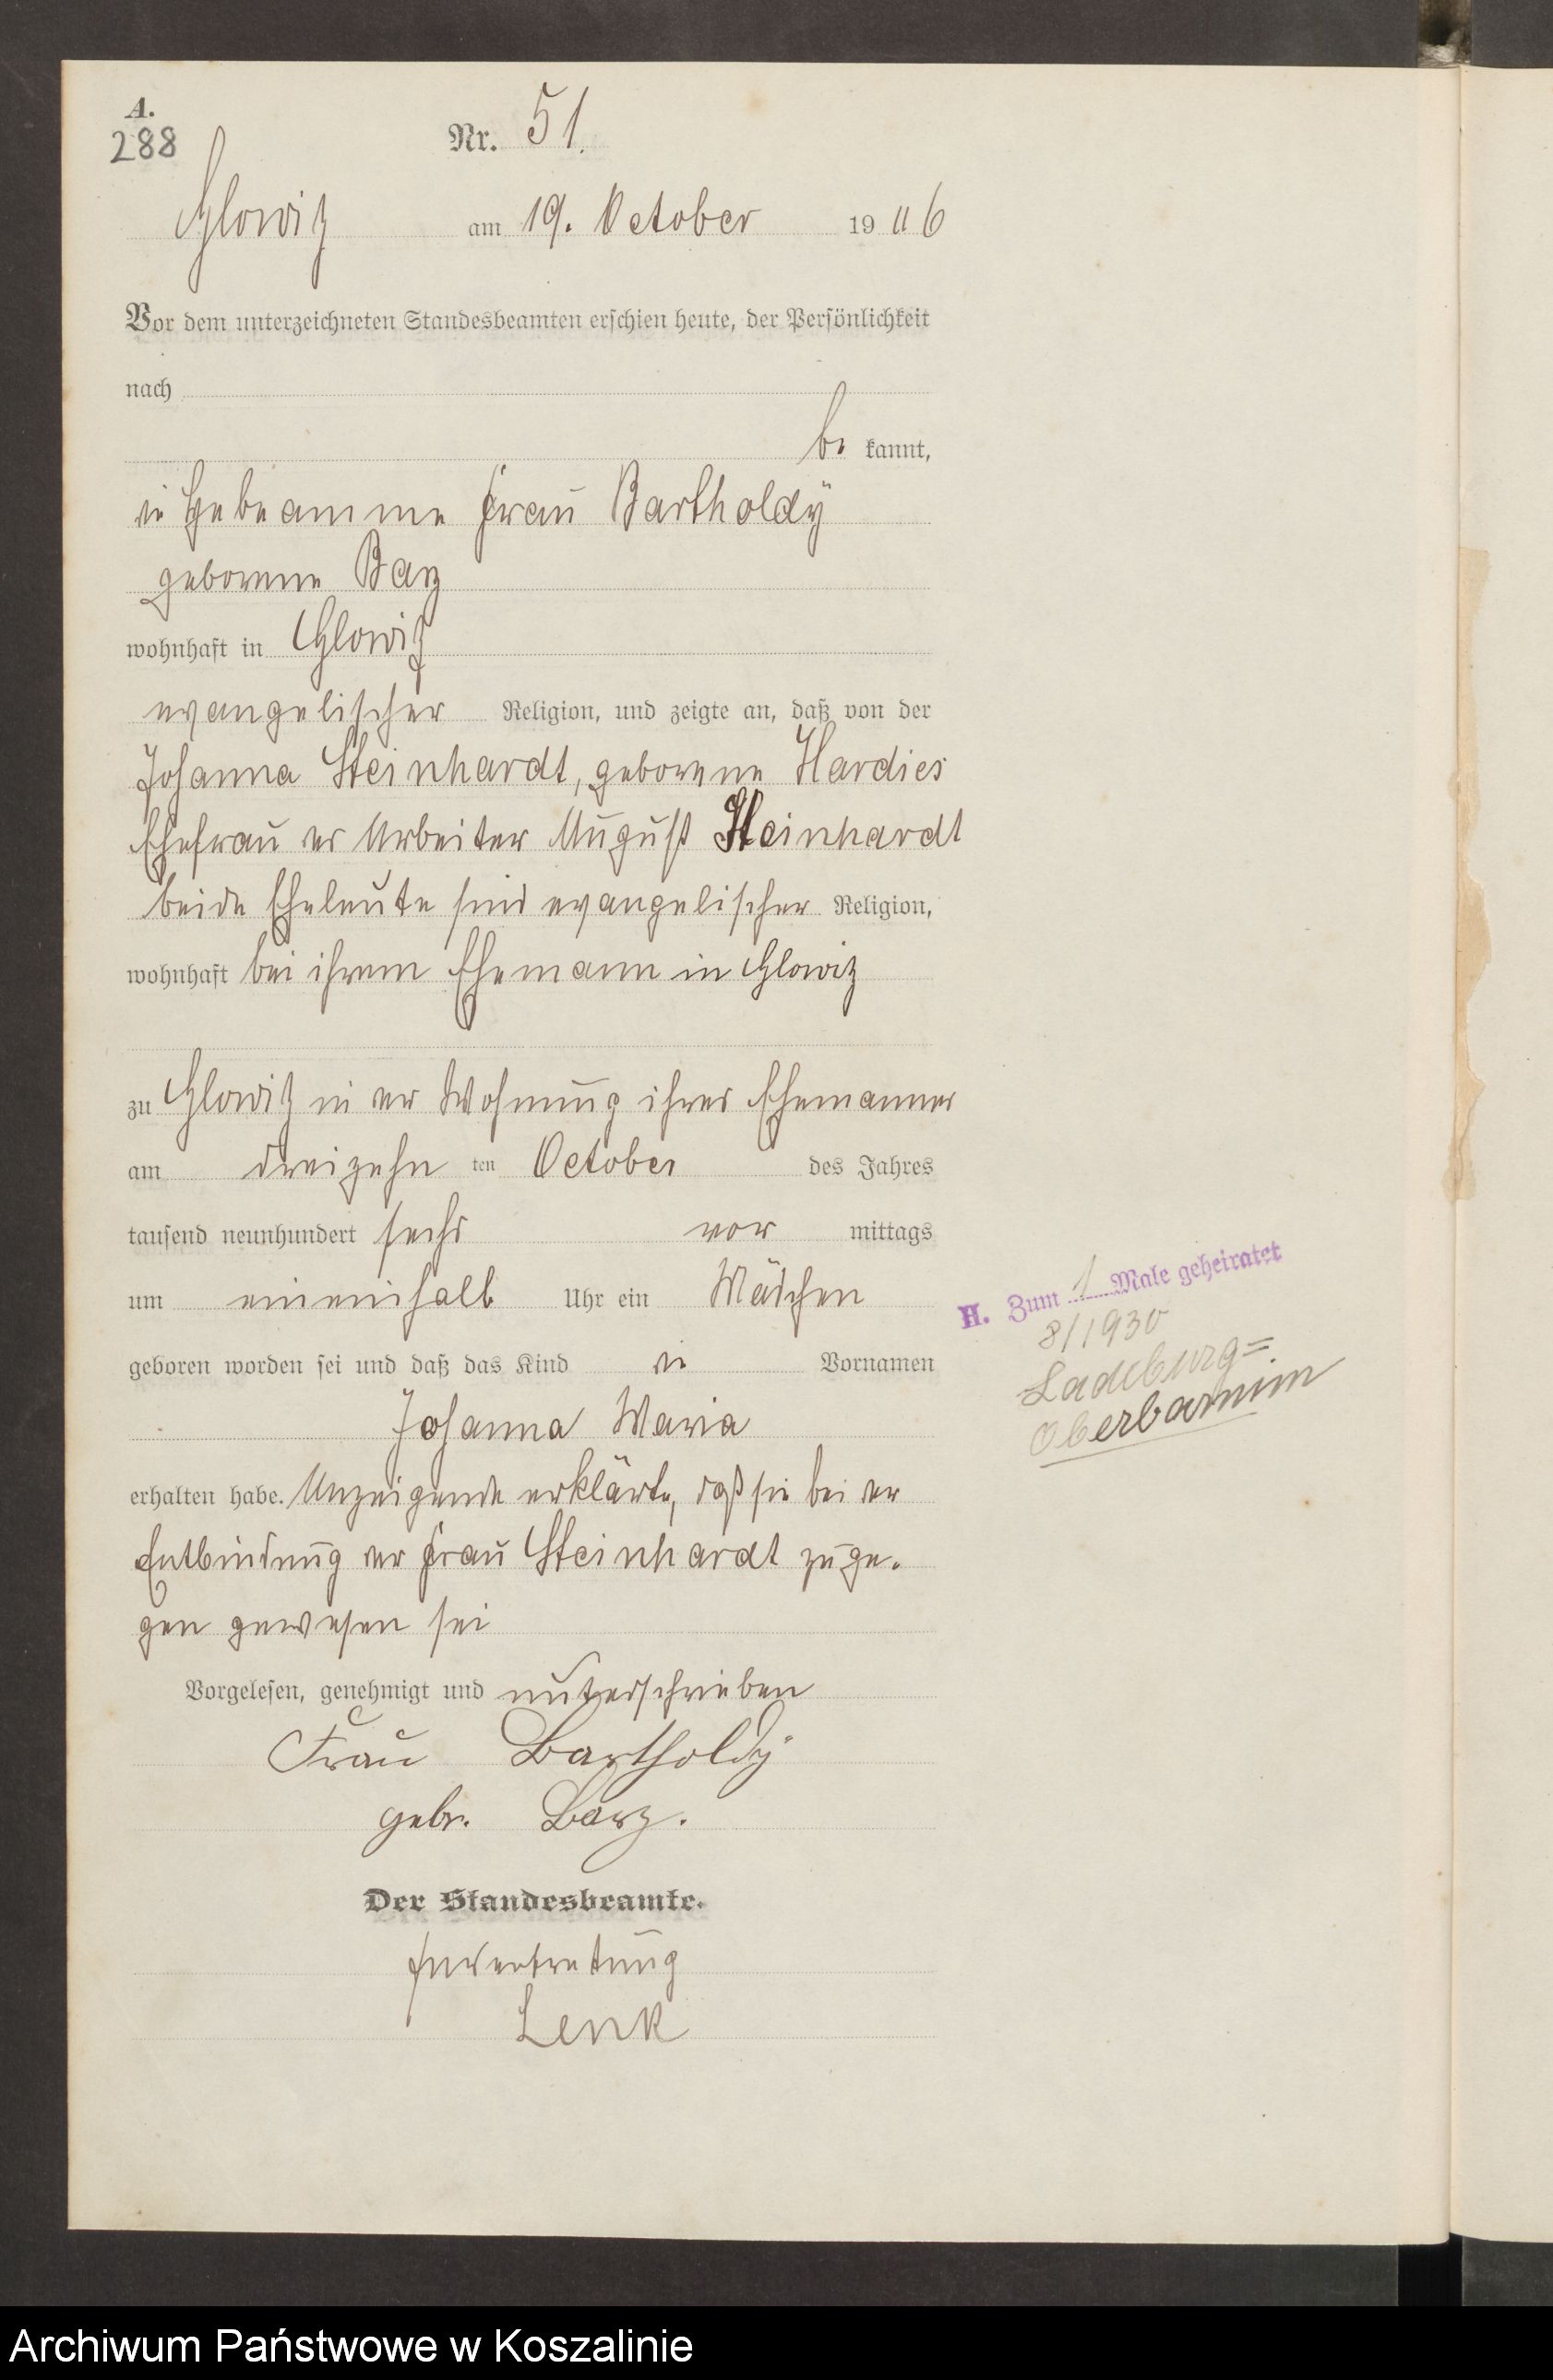 A.
288
Nr. 51.
Glowitz am 19. October 1906
Vor dem unterzeichneten Standesbeamten erschien heute, der Persönlichkeit
nach
be kannt,
die Hebeamme Frau Bartholdy
geborene Barz
wohnhaft in Glowitz
evangelischer Religion, und zeigte an, daß von der
Johanna Steinhardt, geborene Hardies
Ehefrau des Arbeiter August Steinhardt
beide Eheleute sind evangelischer Religion,
wohnhaft bei ihrem Ehemann in Glowitz
zu Glowitz in der Wohnung ihres Ehemannes
am dreizehn ten October des Jahres
tausend neunhundert sechs vor mittags
um eineinhalb Uhr ein Mädchen
geboren worden sei und daß das Kind die Vornamen
Johanna Maria
erhalten habe. Anzeigende erklärte, daß sie bei der
Entbindung der Frau Steinhardt zuge-
gen gewesen sei
Vorgelesen, genehmigt und unterschrieben
Frau Bartholdy
gebr. Barz.
Der Standesbeamte.
In Vertretung
Lenk
H. Zum 1 Male geheiratet
8/1930
Ladeburg=
Oberbarnim
Archiwum Państwowe w Koszalinie